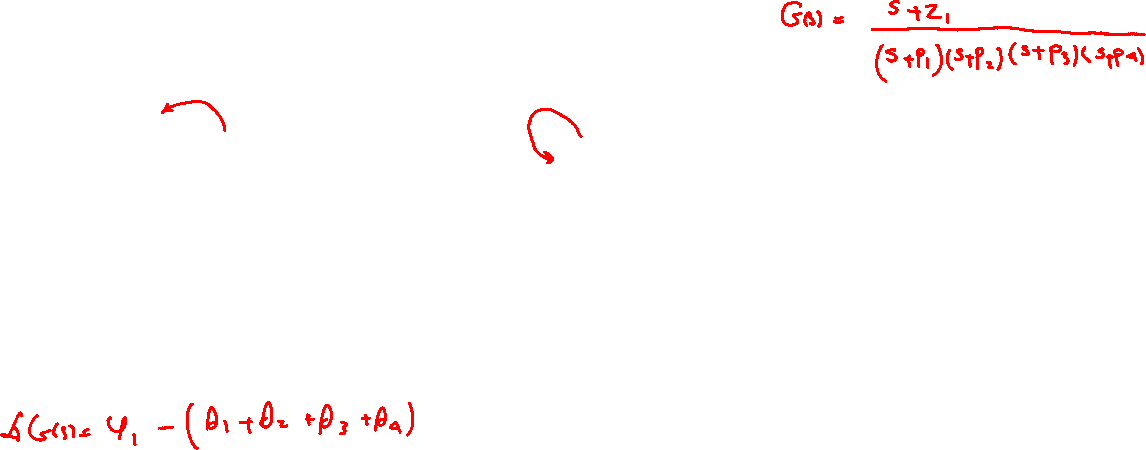 G(s) = \frac{s+z_1}{(s+p_1)(s+p_2)(s+p_3)(s+p_4)}
∠G(s) = φ_1 - (θ_1 + θ_2 + θ_3 + θ_4)